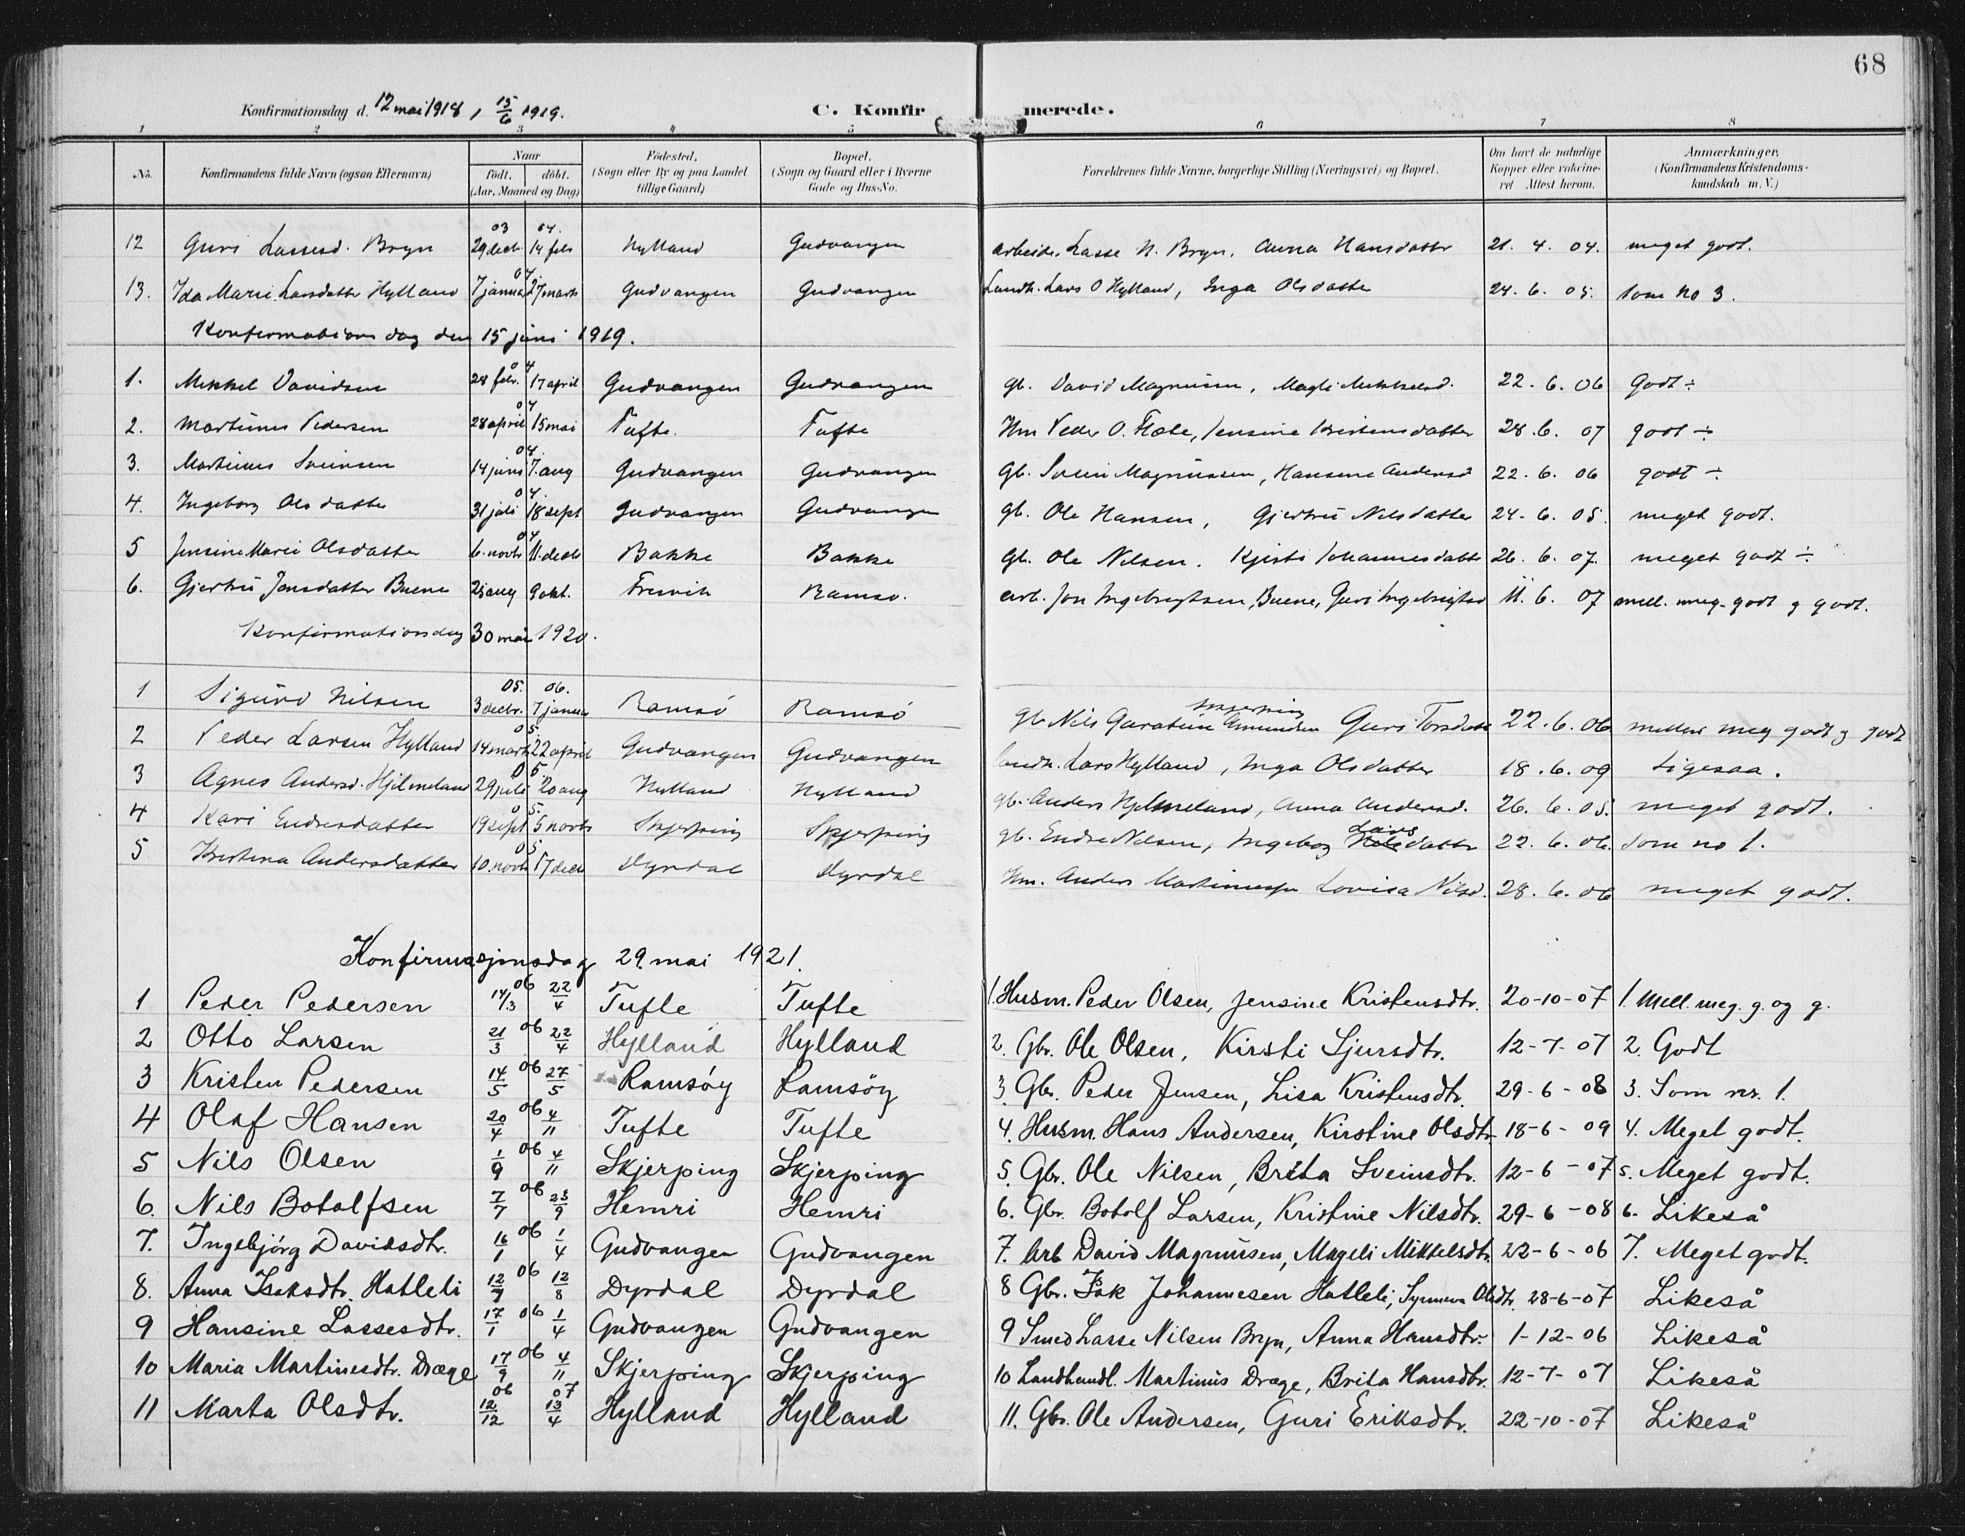 68
Konfirmationsdag d. 12 mai 1918, 15/6 1919. C. Konfirmerede.
1 2 3 4 5 6 7 8
No. Konfirmandens fulde Navn (ogsaa Efternavn) Naar födt. döbt. (Aar, Maaned og Dag) Födested. (Sogn eller By og paa Landet tillige Gaard) Bopæl. (Sogn og Gaard eller i Byerne Gade og Hus-No. Forældrenes fulde Navne, borgerlige Stilling (Næringsvei) og Bopæl. Om havt de naturlige Kopper eller vakcineret Attest herom. Anmærkninger. (Konfirmandens Kristendomskundskab m. V.)
12 Guri Lassesd. Bryn 03 29 decb. 04. 14 febr Hylland Gudvangen arbeider Lasse N. Bryn, Anna Hansdatter 21. 4. 04. meget godt.
13. Ida Marie Larsdatter Hylland 04 7 januar 27 marts Gudvangen Gudvangen Landh. Lars O Hylland, Inga Olsdatter 24. 6. 05. som no 3.
Konfirmationsdag den 15 juni 1919.
1. Mikkel Davidsen 04 28 febr. 17 april Gudvangen Gudvangen gb. David Magnusen, Magli Mikkelsd. 22. 6. 06 Godt ÷
2. Martinus Pedersen 04 28 april 15 mai Tufte. Tufte Hm Peder O. Jensine Kristensdatter 28. 6. 07 godt ÷
3. Martinus Sveinsen 04. 14 juni 7. aug Gudvangen Gudvangen gb. Svein Magnussen, Hansine Andersd 22. 6. 06 godt ÷
4. Ingeborg Olsdatter 04. 31 juli 18 sept Gudvangen Gudvangen gb. Ole Hansen, Gjertru Nilsdatter 24. 6. 05. meget godt.
5 Jensine Marie Olsdatter 04 6. novb 11. decb Bakke Bakke gb. Ole Nilsen. Kjersti Johannesdatt 26. 6. 07. meget godt ÷
6. Gjertru Jonsdatter Buene 25 aug 9 okt. Fresvik Ramsø. arb. Jon Ingebrigtsen, Buene, Guri Ingebrigtsd 11. 6. 07 mell. meg. godt g godt.
Konfirmationsdag 30 mai 1920.
1 Sigurd Nilsen 05. 3 decbr. 06. 7 januar Ramsø Ramsø gb Nils Amundsen Guri Torsdatt 22. 6. 06 mellem meg godt g godt
2 Peder Larsen Hylland 05. 14 mart 22 april Gudvangen Gudvangen landh. Lars Hylland, Inga Olsdatter 18. 6. 09 Ligesaa.
3 Agnes Andersd. Hjelmeland 05 29 juli 20 aug Hylland Hylland gb. Anders Hjelmeland, Anna Andersd. 26. 6. 05. meget godt.
4 Kari Endresdatter 05 19 sept 5 novb Skjerping Skjerping gb. Endre Nilsen, Ingeborg Larsdatter 22. 6. 06. som no 1.
5 Kristina Andersdatter 05 10. novb 17 decb Dyrdal Dyrdal Hm. Anders Martinussen Lovisa Nilsd. 28. 6. 06 meget godt.
Konfirmasjonsdag 29. mai 1921.
1 Peder Pedersen 14/3 06 22/4 Tufte Tufte 1. Husm. Peder Olsen, Jensine Kristensdtr. 20-10-07 1. Mell. meg. g. og g.
2 Otto Larsen 21/3 06 22/4 Hylland Hylland 2. Gbr. Ole Olsen, Kirsti Sjursdtr. 12-7-07 2. Godt
3 Kristen Pedersen 14/5 06 27/5 Ramsøy Ramsøy 3. Gbr. Peder Jensen, Lisa Kristensdtr. 29-6-08 3. Som nr. 1.
4 Olaf Hansen 20/4 06 4/11 Tufte Tufte 4. Husm. Hans Andersen, Kirstine Olsdtr. 18-6-09 4. Meget godt.
5 Nils Olsen 1/9 06 4/11 Skjerping Skjerping 5. Gbr. Ole Nilsen, Brita Sveinsdtr. 12-6-07 5. Meget godt.
6. Nils Botolfsen 7/7 06 23/9 Hemri Hemri 6. Gbr. Botolf Larsen, Kristine Nilsdtr. 29-6-08 6. Likeså
7. Ingebjörg Davidsdtr. 16/1 06 1/4 Gudvangen Gudvangen 7. Arb David Magnusen, Mageli Mikkelsdtr. 22-6-06 7. Meget godt.
8. Anna Isaksdtr. Hatleli 12/7 06 12/8 Dyrdal Dyrdal 8 Gbr. Isak Johannesen Hatleli, Synneva Olsdtr. 28-6-07 Likeså
9 Hansine Lassesdtr. 17/1 06 1/4 Gudvangen Gudvangen 9 Smed Lasse Nilsen Bryn, Anna Hansdtr. 1-12-06 Likeså
10 Maria Martinusdtr. Dræge 17/9 06 4/11 Skjerping Skjerping 10 Landhandl. Martinus Dræge, Brita Hansdtr. 12-7-07 Likeså
11 Marta Olsdtr. 06 12/12 07 13/4 Hylland Hylland 11. Gbr. Ole Andersen, Guri Eriksdtr. 22-10-07 Likeså